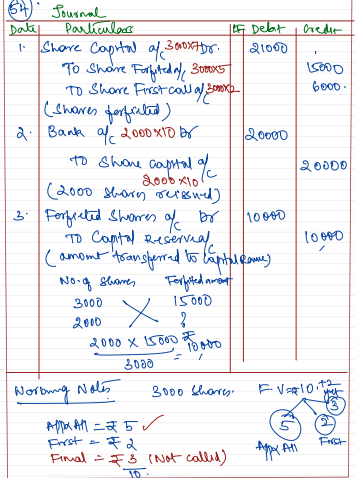 54
Journal
Date Particulars LF Debit Credit
1. Share Capital a/c 3000x7 Dr. 21000
To Share Forfeited a/c 3000x5 15000
To Share First call a/c 3000x2 6000
(Shares forfieted)
2. Bank a/c 2000x10 Dr 20000
To Share capital a/c 20000
2000x10
(2000 shares reissued)
3. Forfieted Shares a/c Dr 10000
To Capital Reserve a/c 10000
(amount transferred to Capital Reserve)
No. of Shares Forfeited amount
3000 15000
2000 ?
2000 x 15000 = ₹ 10,000
3000
Working Notes 3000 shares. F.V = ₹10.
5 2 3
App & All First
App & All = ₹ 5 ✓
First = ₹ 2
Final = ₹ 3 (Not called)
10